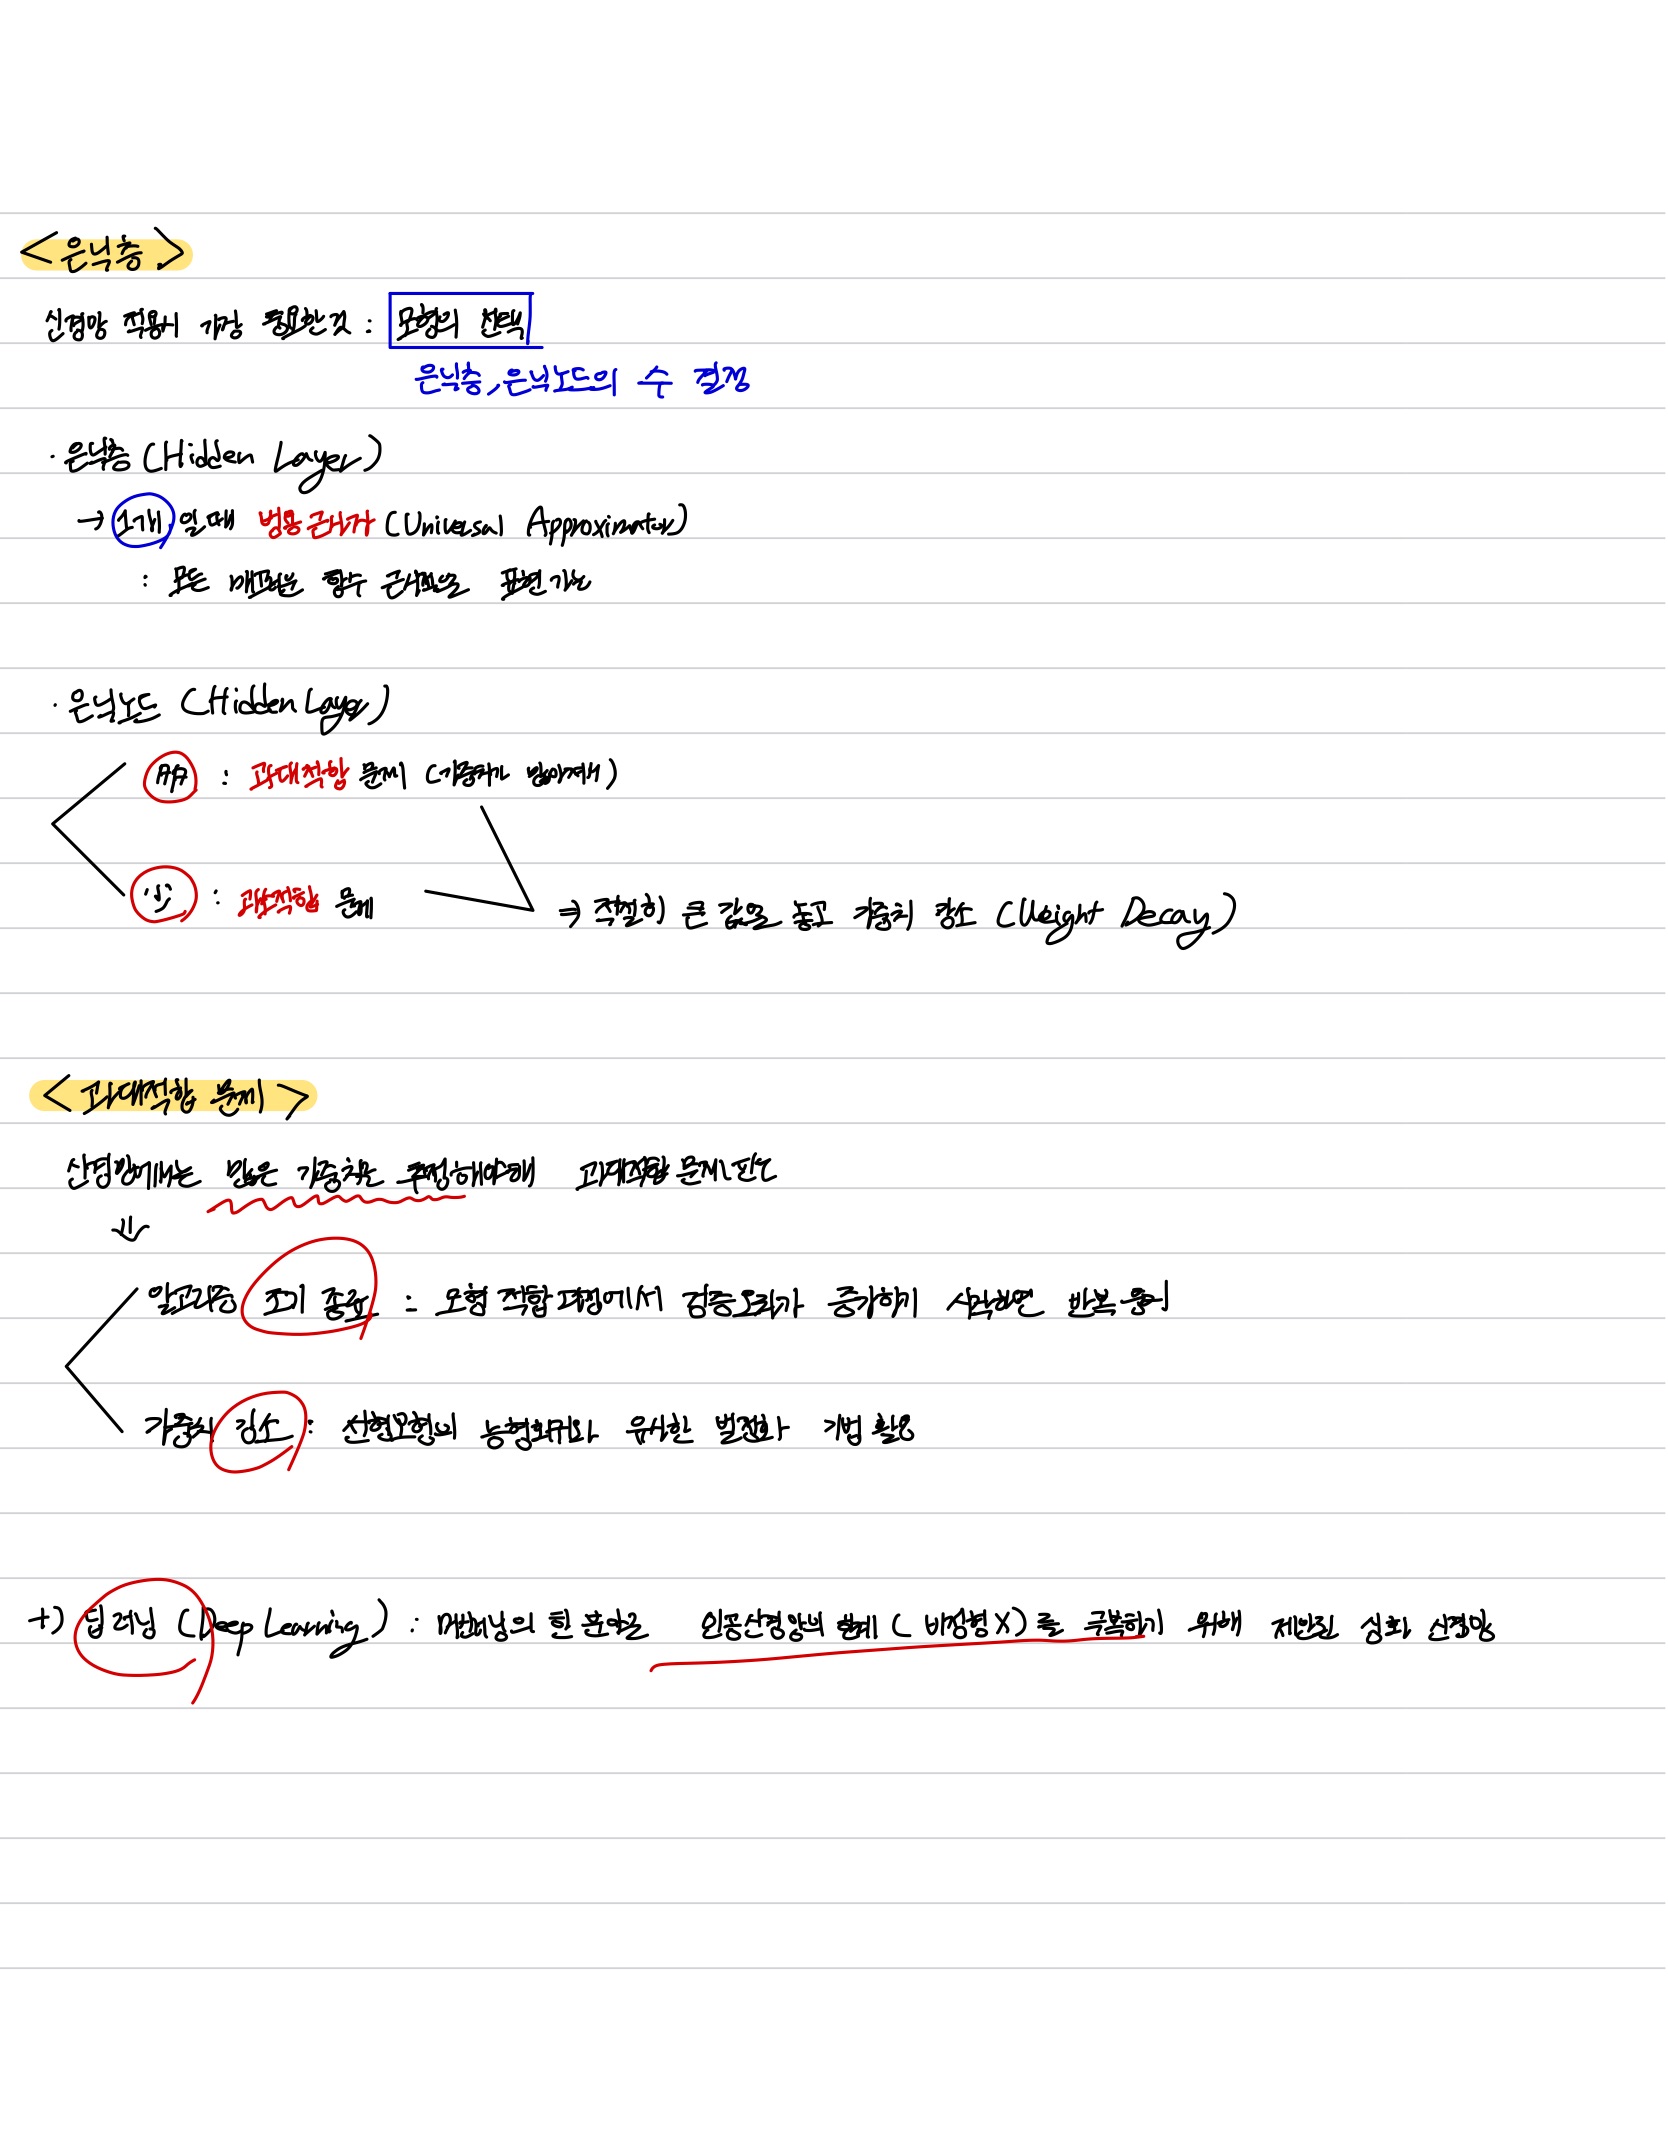 <은닉층>
신경망 적용시 가장 중요한것 : 모형의 선택
은닉층, 은닉노드의 수 결정
· 은닉층 (Hidden Layer)
→ 1개 일때 범용근사자 (Universal Approximator)
: 모든 매끄러운 함수 근사적으로 표현가능
· 은닉노드 (Hidden Layer)
多 : 과대적합 문제 (가중치가 많아져서)
少 : 과소적합 문제
⇒ 적절히 큰 값을 놓고 가중치 감소 (Weight Decay)
<과대적합 문제>
신경망에서는 많은 가중치를 추정해야해 과대적합 문제 빈도
⇓
알고리즘 조기 종료 : 모형 적합 과정에서 검증오차가 증가하기 시작하면 반복 중지
가중치 감소 : 선형모형의 능형회귀와 유사한 벌점화 기법 활용
+) 딥러닝 (Deep Learning) : 머신러닝의 한 분야로 인공신경망의 한계 ( 비정형 X) 를 극복하기 위해 제안된 심화 신경망